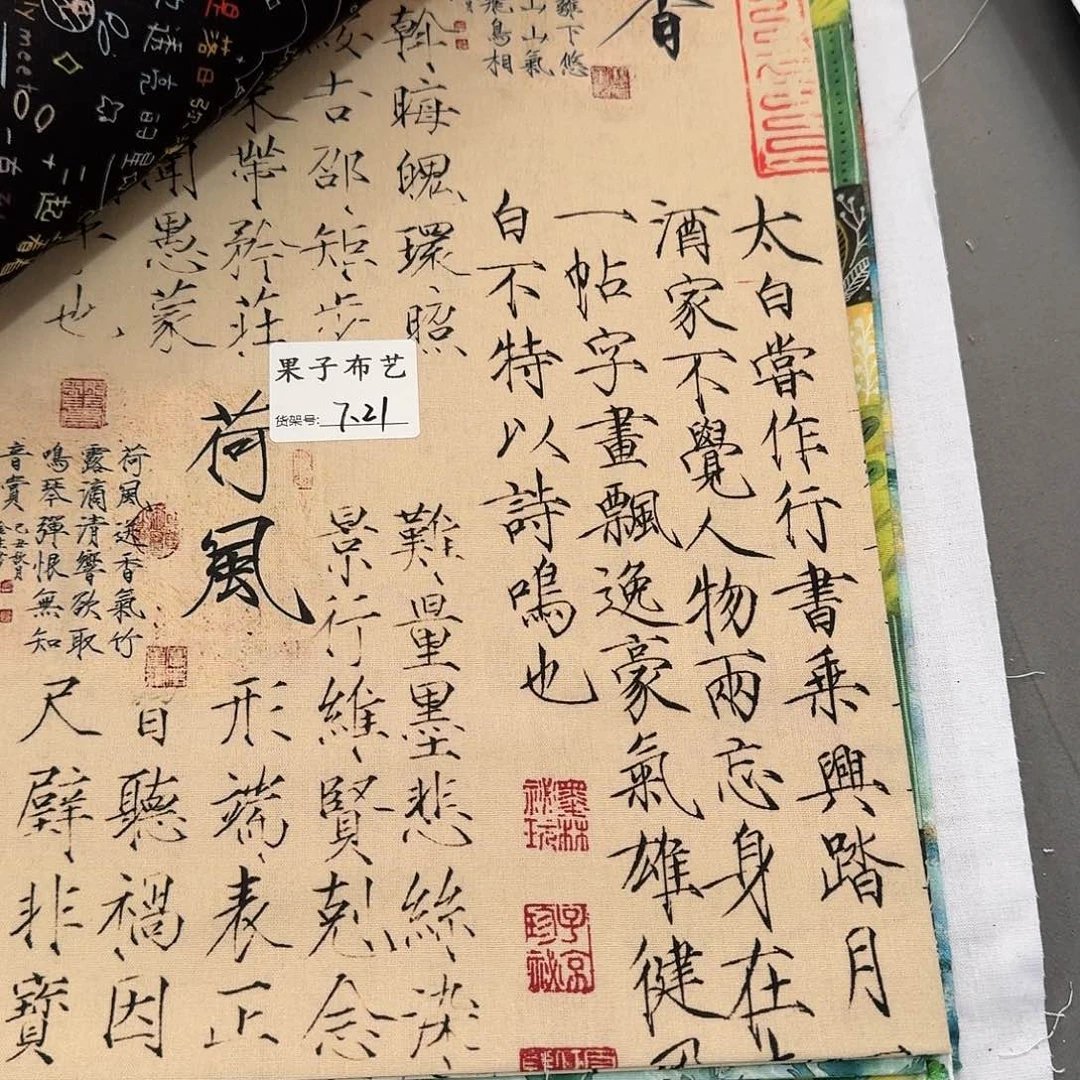 太白嘗作行書乘興踏月
酒家不覺人物兩忘身在
一帖字畫飄逸豪氣雄健
白不特以詩鳴也
墨林祕玩
子京珍祕
香
下悠
山氣
飛鳥相
斡晦魄環照
綏吉邵矩步
束帶矜莊
聞愚蒙
也
果子布艺
货架号: 7.21
難量墨悲絲染
景行維賢剋念
荷風
荷風送香氣竹
露滴清響欲取
鳴琴彈恨無知
音賞
形端表正
聽禍因
尺璧非寶
是落日
一起看
meet